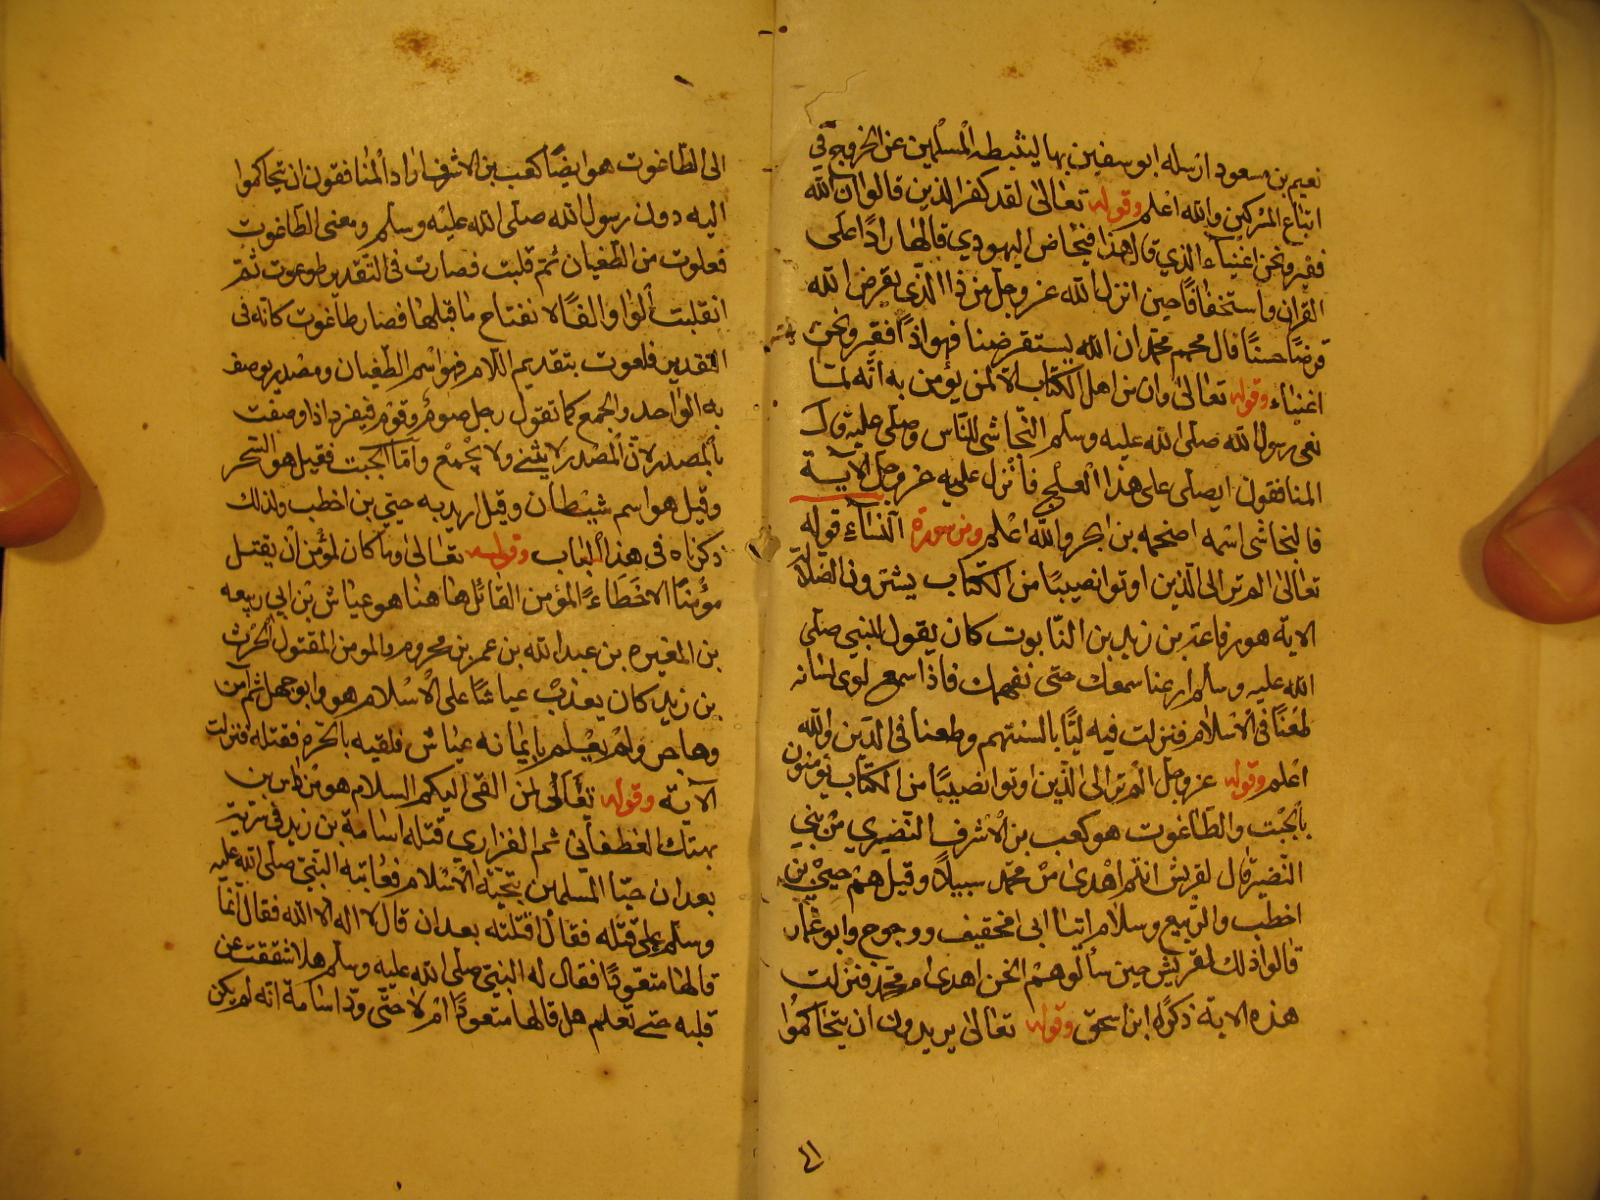 نعيم بن مسعود ارسله ابو سفين بها ليثبطه المسلمين عن الخروج في
اتباع المشركين والله اعلم وقوله تعالى لقد كفر الذين قالوا ان الله
فقير ونحن اغنياء الذي قال هذا فنحاص اليهودي قالها رادا على
القران واستخفافا حين انزل الله عز وجل من ذا الذي يقرض الله
قرضا حسنا قال محمد ان الله يستقرضنا فهو اذا فقير ونحن
اغنياء وقوله تعالى وان من اهل الكتاب لمن يؤمن به انه لما
نعى رسول الله صلى الله عليه وسلم النجاشي للناس وصلى عليه قال
المنافقون ايصلى على هذا العلج فانزل عليه عز وجل الآية
فالنجاشي اسمه اصحمه بن ابجر والله اعلم ومن سورة النساء قوله
تعالى الم تر الى الذين اوتوا نصيبا من الكتاب يشترون الضلالة
الاية هو رفاعة بن زيد بن التابوت كان يقول للنبي صلى
الله عليه وسلم ارعنا سمعك حتى نفهمك فاذا سمع لوى لسانه
طعنا في الاسلام فنزلت فيه ليا بالسنتهم وطعنا في الدين والله
اعلم وقوله عز وجل الم تر الى الذين اوتوا نصيبا من الكتاب يؤمنون
بالجبت والطاغوت هو كعب بن الاشرف النضيري من بني
النضير قال لقريش انتم اهدى من محمد سبيلا وقيل هم حيي بن
اخطب والربيع وسلام ابنا ابي الحقيق ووجوج وابو عمار
قالوا ذلك لقريش حين سألوهم انحن اهدى ام محمد فنزلت
هذه الاية ذكره ابن اسحق وقوله تعالى يريدون ان يتحاكموا
الى الطاغوت هو ايضا كعب بن الاشرف اراد المنافقون ان يتحاكموا
اليه دون رسول الله صلى الله عليه وسلم ومعنى الطاغوت
فعلوت من الطغيان ثم قلبت فصارت في التقدير طوعوت ثم
انقلبت الواو الفا لانفتاح ما قبلها فصار طاغوت كانه في
التقدير فلعوت بتقديم اللام فهو اسم الطغيان ومصدر يوصف
به الواحد والجمع كما تقول رجل صوم وقوم فيفرد اذا وصفت
بالمصدر لان المصدر لا يثنى ولا يجمع واما الجبت فقيل هو السحر
وقيل هو اسم شيطان وقيل اريد به حيي بن اخطب ولذلك
ذكرناه في هذا الباب وقوله تعالى وما كان لمؤمن ان يقتل
مؤمنا الا خطاء المؤمن القاتل هاهنا هو عياش بن ابي ربيعه
بن المغيره بن عبد الله بن عمر بن مخزوم والمومن المقتول الحرث
بن زيد كان يعذب عياشا على الاسلام هو وابو جهل ثم آمن
وهاجر ولم يعلم بايمانه عياش فلقيه بالحرة فقتله فنزلت
الآية وقوله تعالى لمن القى اليكم السلام هو مرداس بن
نهيك الغطفاني ثم الفزاري قتله اسامة بن زيد في سرية
بعد ان حيا المسلمين بتحية الاسلام فعاتبه النبي صلى الله عليه
وسلم على قتله فقال اقتلته بعد ان قال لا اله الا الله فقال انما
قالها متعوذا فقال له النبي صلى الله عليه وسلم هلا شققت عن
قلبه حتى تعلم هل قالها متعوذا ام لا حتى ود اسامة انه لم يكن